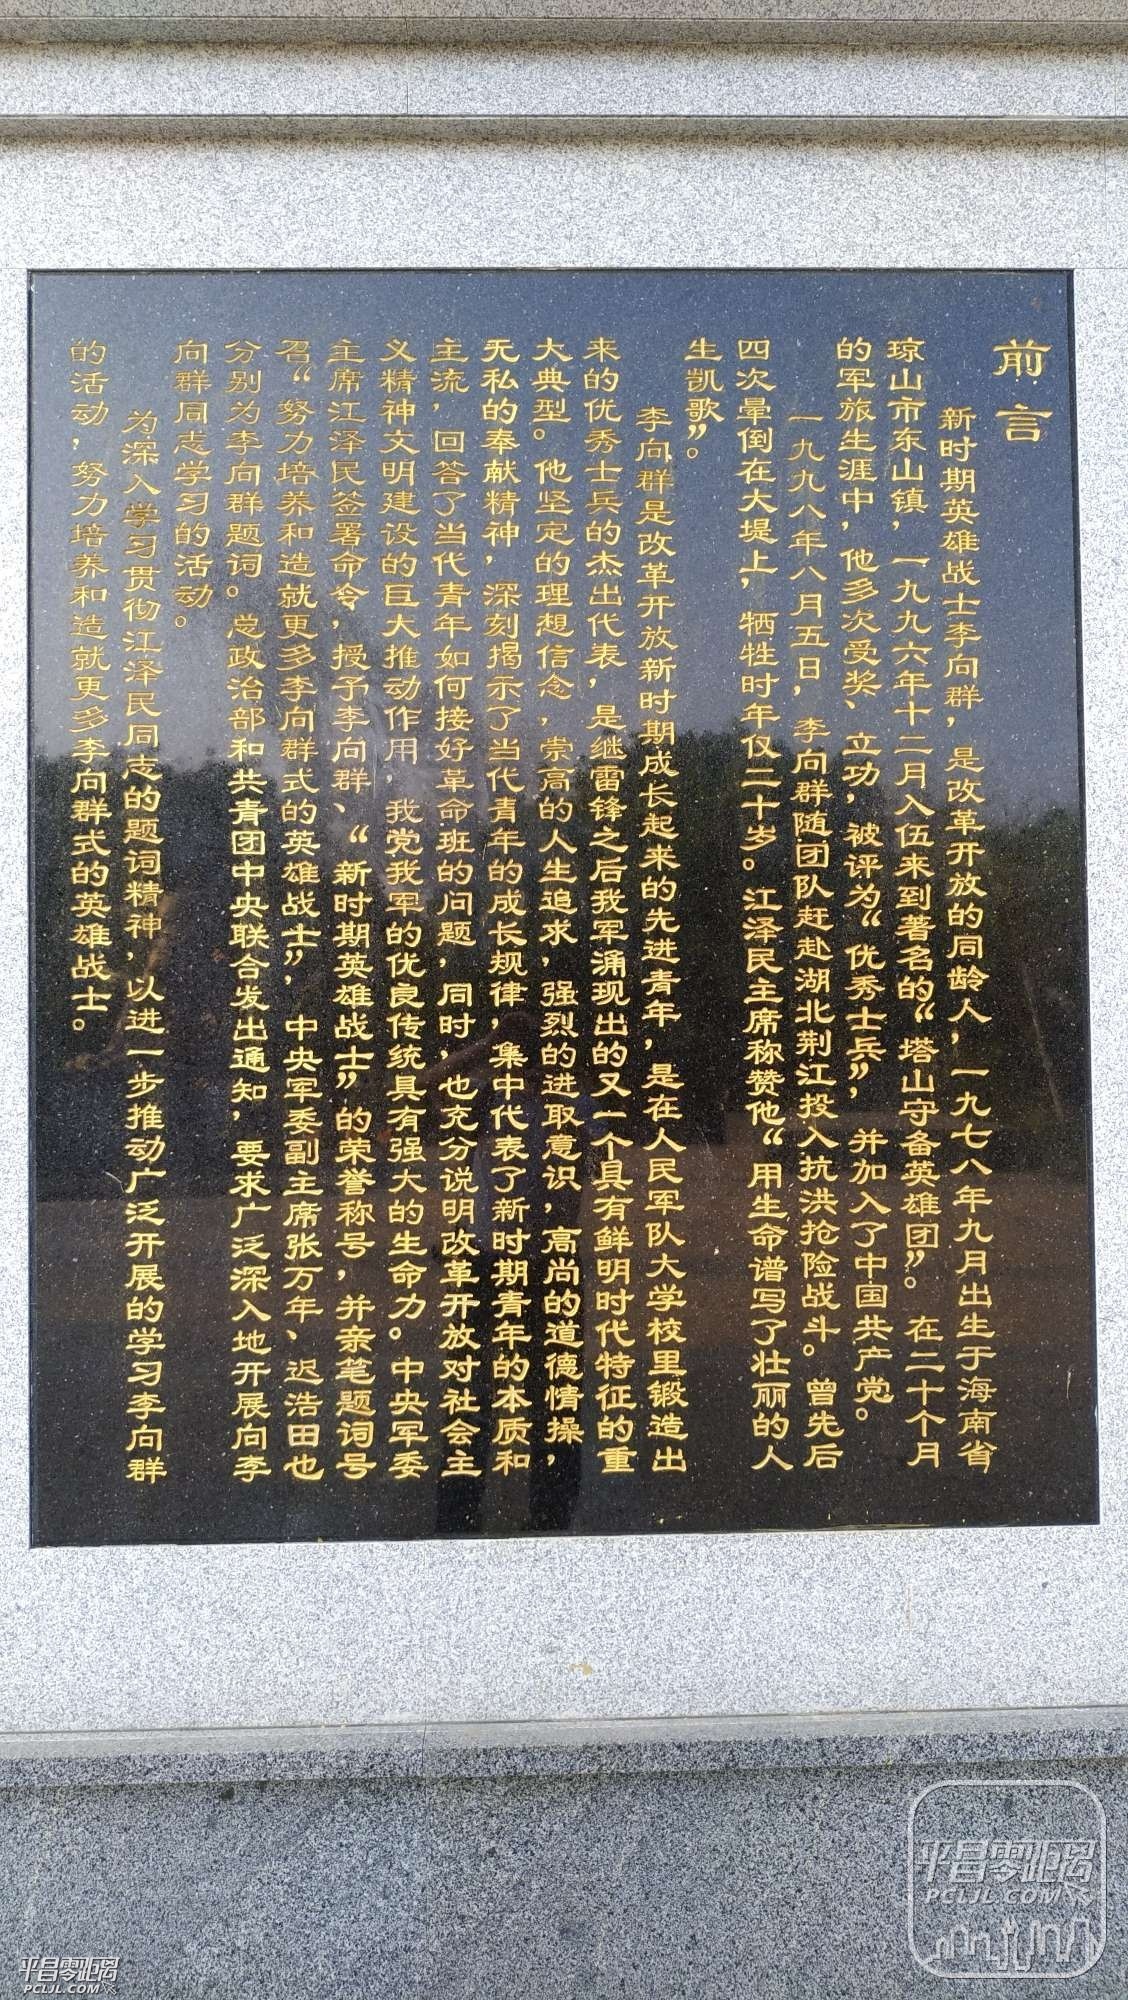 前言
新时期英雄战士李向群，是改革开放的同龄人，一九七八年九月出生于海南省
琼山市东山镇，一九九六年十二月入伍来到著名的“塔山守备英雄团”。在二十个月
的军旅生涯中，他多次受奖、立功，被评为“优秀士兵”，并加入了中国共产党。
一九九八年八月五日，李向群随团队赶赴湖北荆江投入抗洪抢险战斗。曾先后
四次晕倒在大堤上，牺牲时年仅二十岁。江泽民主席称赞他“用生命谱写了壮丽的人
生凯歌”。
李向群是改革开放新时期成长起来的先进青年，是在人民军队大学校里锻造出
来的优秀士兵的杰出代表，是继雷锋之后我军涌现出的又一个具有鲜明时代特征的重
大典型。他坚定的理想信念，崇高的人生追求，强烈的进取意识，高尚的道德情操，
无私的奉献精神，深刻揭示了当代青年的成长规律，集中代表了新时期青年的本质和
主流，回答了当代青年如何接好革命班的问题，同时，也充分说明改革开放对社会主
义精神文明建设的巨大推动作用，我党我军的优良传统具有强大的生命力。中央军委
主席江泽民签署命令，授予李向群、“新时期英雄战士”的荣誉称号，并亲笔题词号
召“努力培养和造就更多李向群式的英雄战士”，中央军委副主席张万年、迟浩田也
分别为李向群题词。总政治部和共青团中央联合发出通知，要求广泛深入地开展向李
向群同志学习的活动。
为深入学习贯彻江泽民同志的题词精神，以进一步推动广泛开展的学习李向群
的活动，努力培养和造就更多李向群式的英雄战士。
平昌零距离
PCLJL.COM
平昌零距离
PCLJL.COM